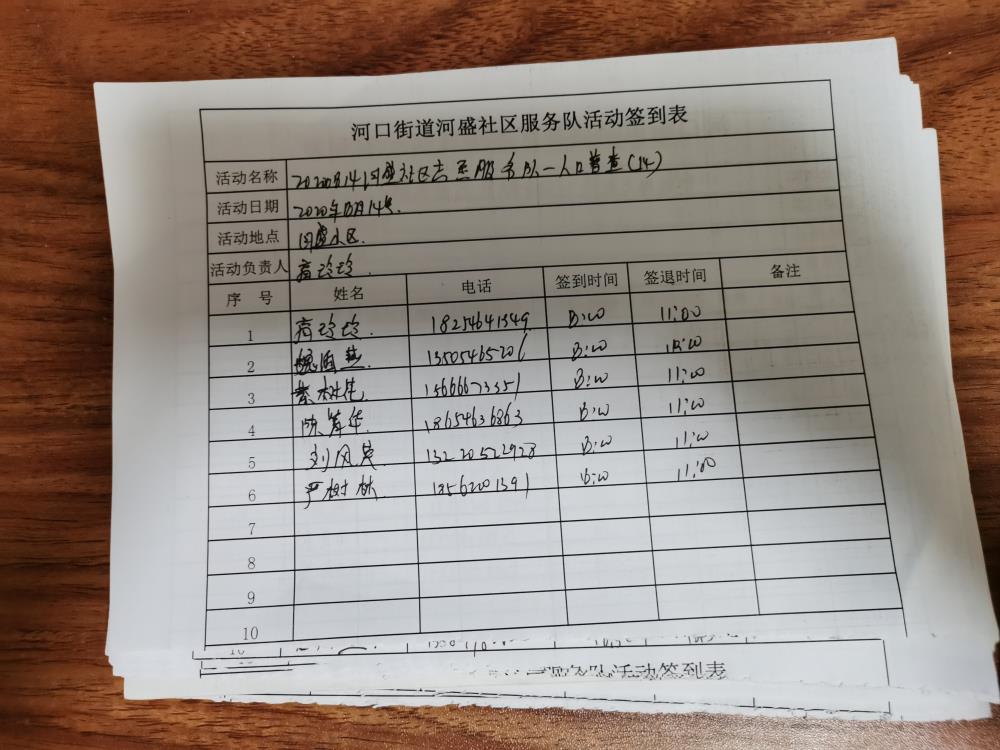 河口街道河盛社区服务队活动签到表
活动名称 社区志愿服务队一人口普查(14)
活动日期 2020年 月14号.
活动地点 河盛社区.
活动负责人 玲玲.
序 号 姓名 电话 签到时间 签退时间 备注
1 玲玲. 18254641349 8:00 11:00
2 13505465206 8:00 11:00
3 15666673351 8:00 11:00
4 18654636863 8:00 11:00
5 刘风英 13220522928 8:00 11:00
6 严树林 18562001391 8:00 11:00
7
8
9
10
服务队活动签到表